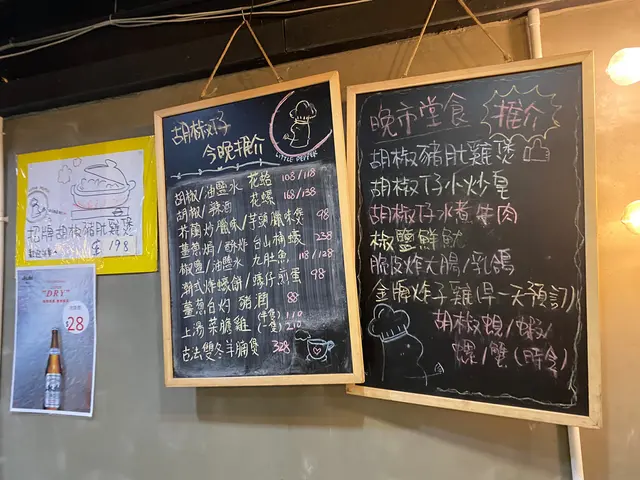 招牌胡椒豬肚雞煲
198
"DRY"
28
胡椒仔
今晚推介
LITTLE PEPPER
胡椒/油鹽水 花蛤 108/118
胡椒/辣酒 花螺 168/138
芥蘭炒臘味/芋頭臘味煲 98
薑蔥焗/酥炸 台山桶蠔 238
椒鹽/油鹽水 九肚魚 118/128
潮式炸蠔餅/蠔仔煎蛋 98
薑蔥白灼 豬潤 88
上湯菜脆雞 (半隻)110
(一隻)210
古法雙冬羊腩煲 328
晚市堂食 推介
胡椒豬肚雞煲
胡椒仔小炒皇
胡椒仔水煮牛肉
椒鹽鮮魷
脆皮炸大腸/乳鴿
金牌炸子雞(早一天預訂)
胡椒蜆/蝦/
螺/蟹(時令)